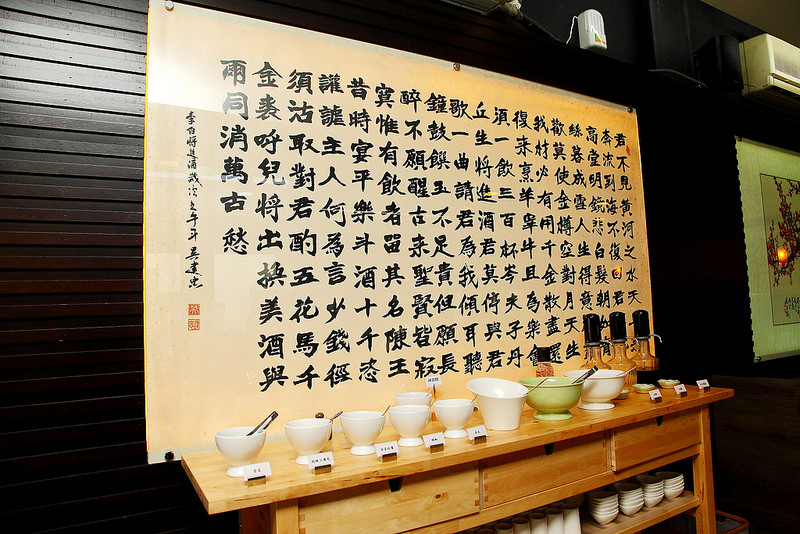 君不見黃河之水天
奔流到海不復回君
高堂明鏡悲白髮朝
絲暮成雪人生得意
歡莫使金樽空對月天生
我材必有用千金散盡還
復來烹羊宰牛且為樂會
須一飲三百杯岑夫子丹
丘生將進酒君莫停與君
歌一曲請君為我傾耳聽
鐘鼓饌玉不足貴但願長
醉不願醒古來聖賢皆寂
寞惟有飲者留其名陳王
昔時宴平樂斗酒十千恣
讙謔主人何為言少錢徑
須沽取對君酌五花馬千
金裘呼兒將出換美酒與
爾同消萬古愁
李白將進酒歲次